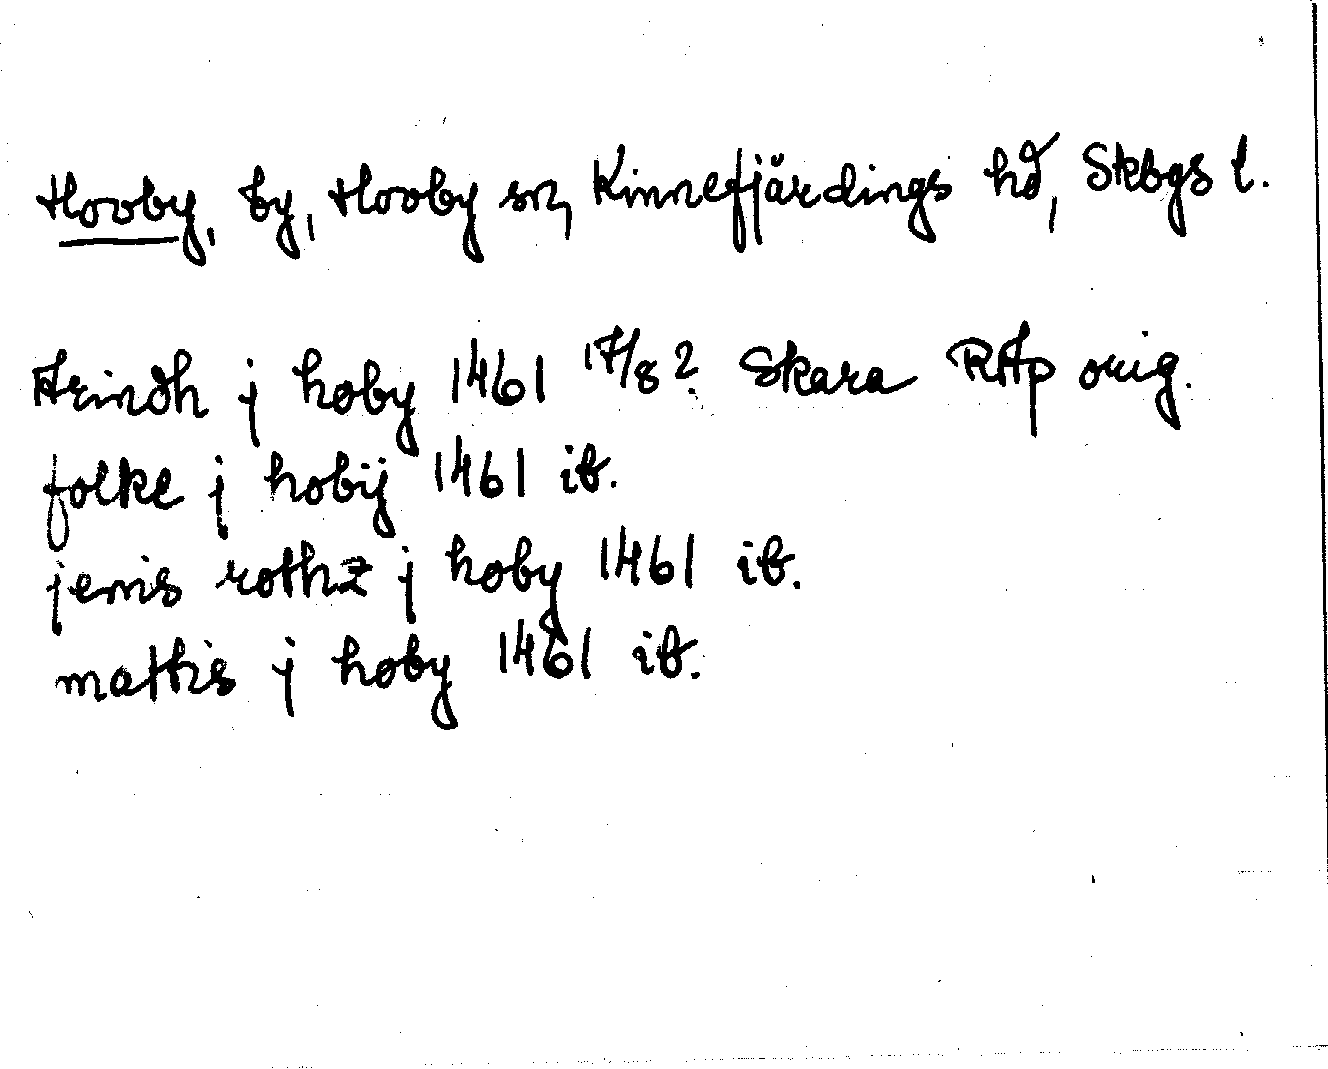 Hovby, by, Hovby sn, Kinnefjärdings hd, Skbgs l.
Arindh j høby 1461 17/8? Skara RAp orig.
folke j høbij 1461 ib.
jenis røthz j høby 1461 ib.
mathis j høby 1461 ib.